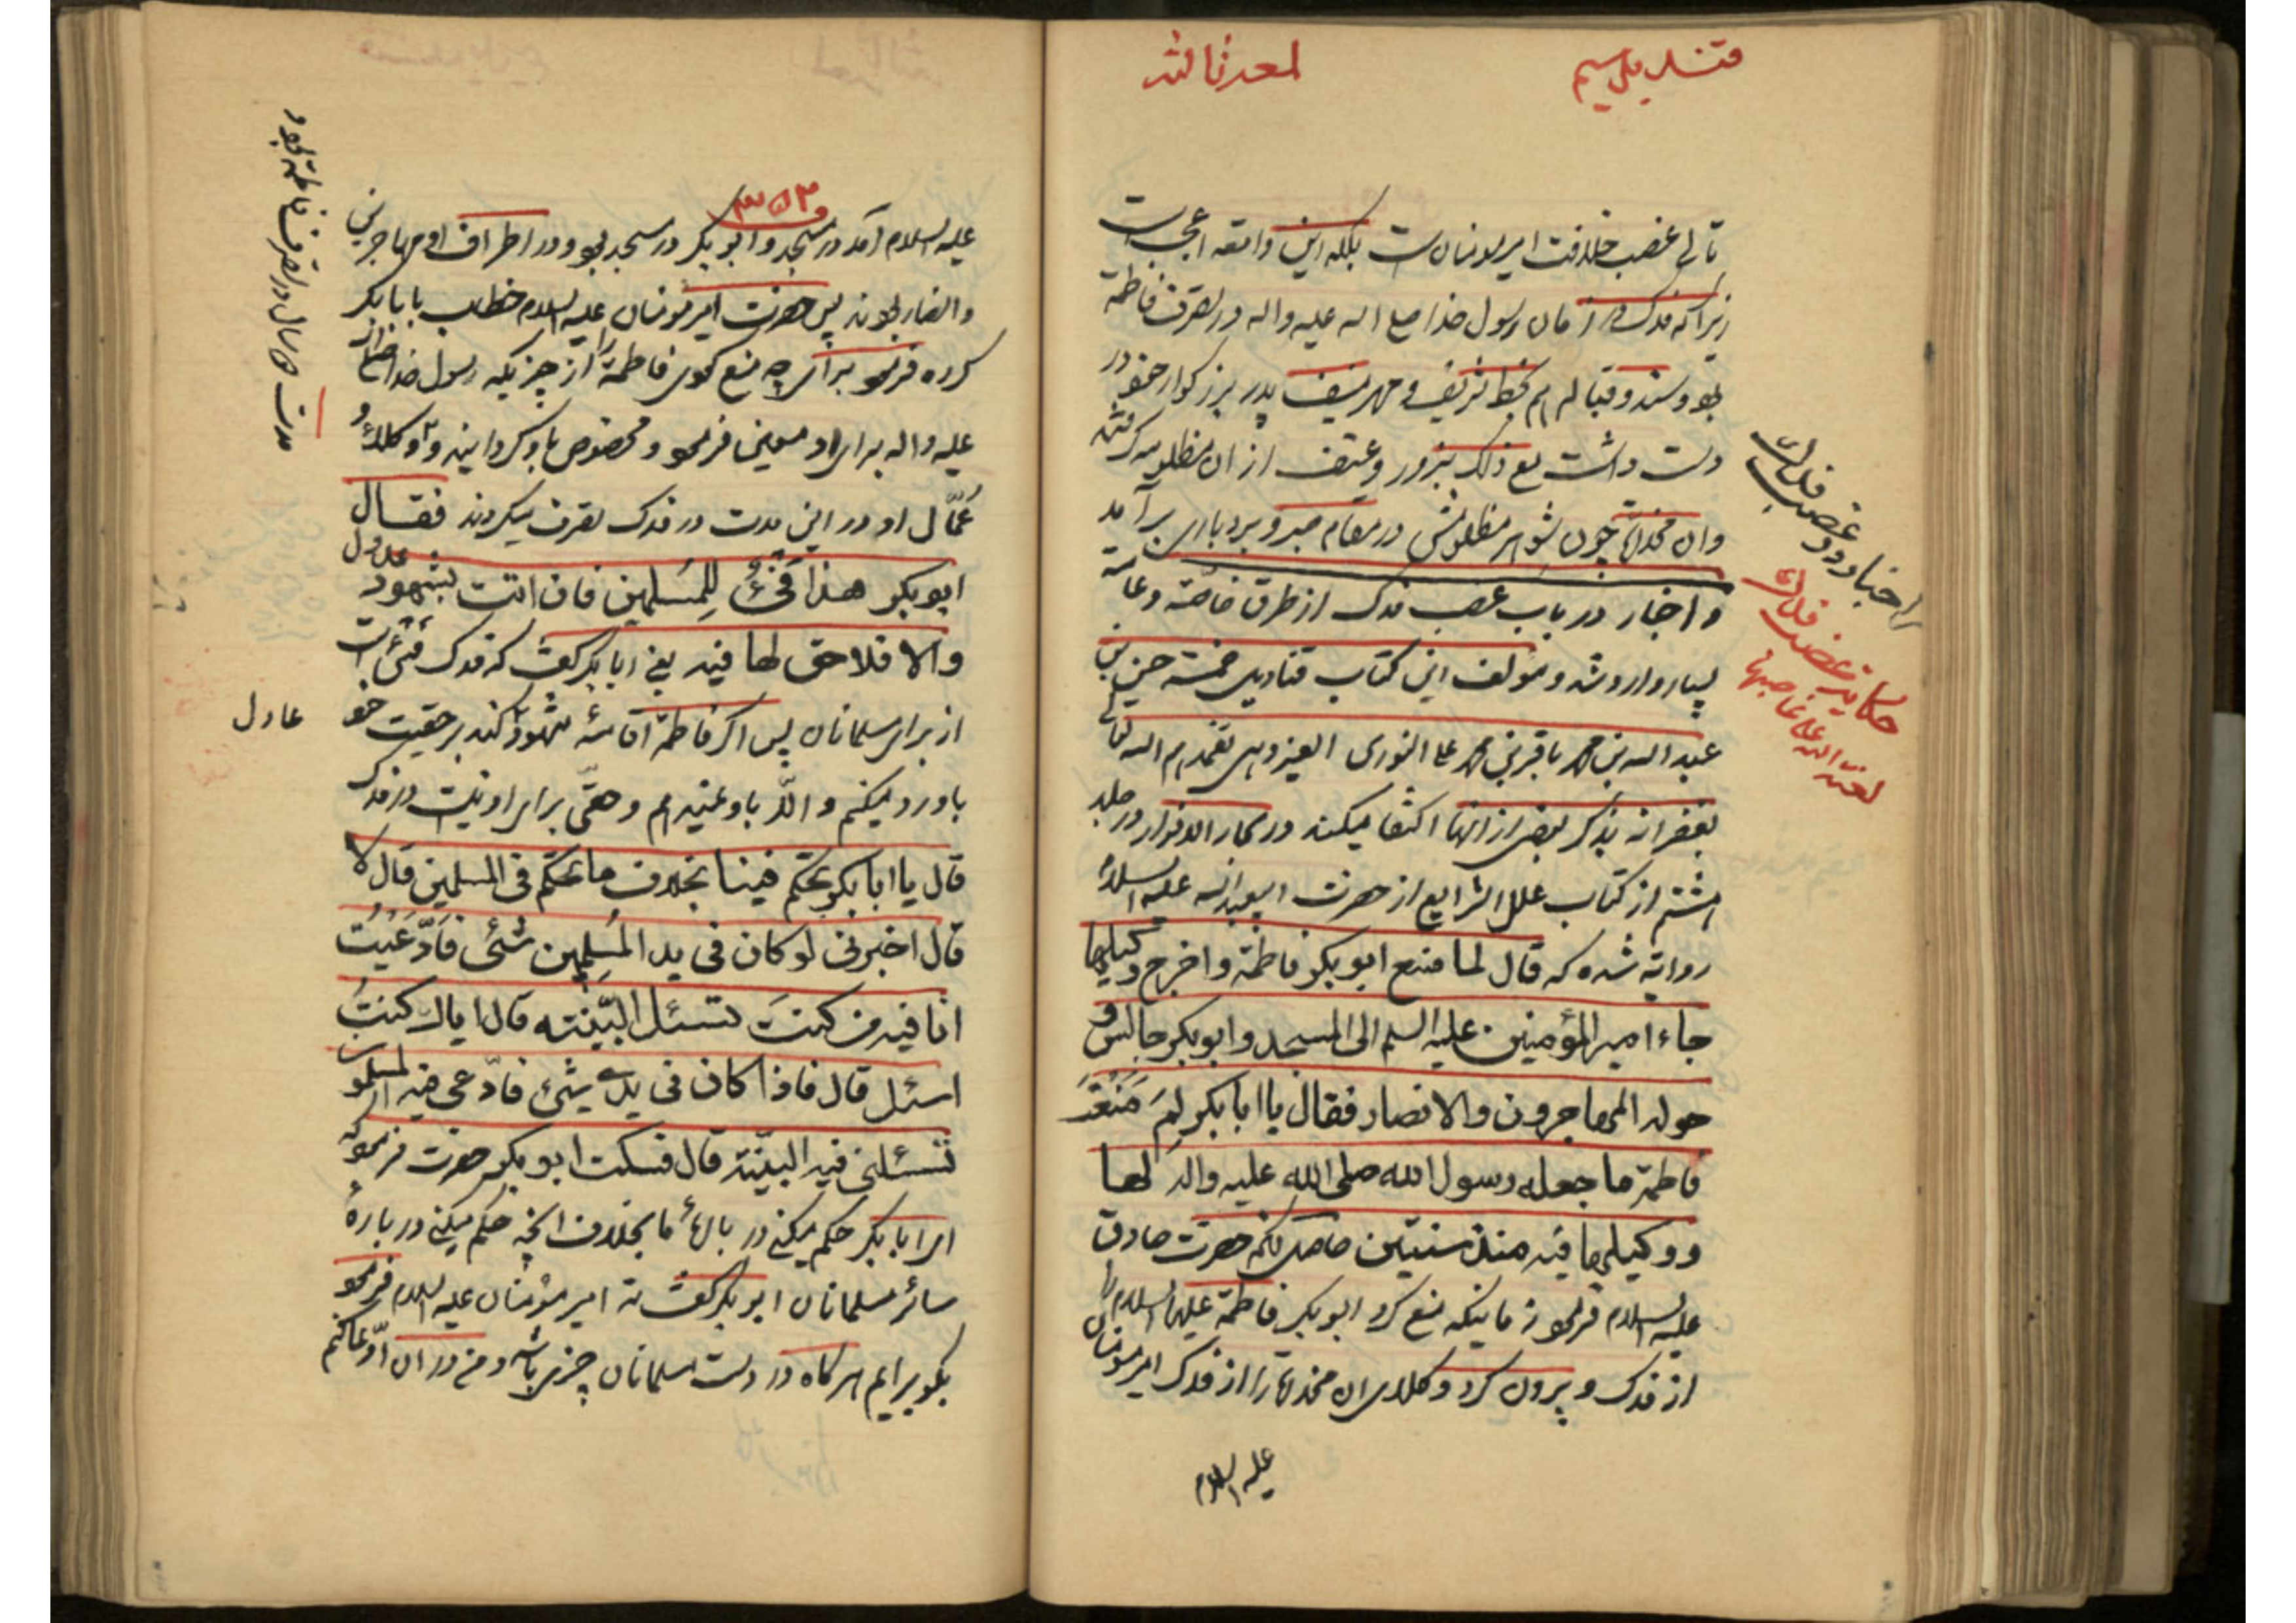 قندیل سیم
لمعه ثالثه
تالی غصب خلافت امیرمومنان است بلکه این واقعه اعجب است
زیرا که فدک در زمان رسول خدا صلی الله علیه واله در تصرف فاطمة
بود و سند و قباله هم بخط شریف و مهر منیف پدر بزرکوار خود در
دست داشت مع ذلک بزور وعنف از ان مظلومه کرفتند
وان مخدره چون شوهر مظلومش در مقام صبر و بردباری برآمد
و اخبار در باب غصب فدک از طرق خاصّه و عامّه
بسیار وارد شده و مؤلف این کتاب قنادیل خمسه حسن بن
عبدالله بن محمد باقر بن محمد علی النوری العیزدهی تغمدهم الله تعالی
بغفرانه بذکر بعضی از انها اکتفا میکند در بحار الانوار در جلد
هشتم از کتاب علل الشرایع از حضرت ابیعبدالله علیه السلام
روایة شده که قال لما منع ابوبکر فاطمة واخرج وکیلها
جاء امیر المؤمنین علیه السلم الی المسجد وابوبکر جالس و
حوله المهاجرون والانصار فقال یا ابابکر لِمَ مَنَعْتَ
فاطمة ما جعله رسول الله صلی الله علیه واله لها
ووکیلها فیه منذ سنتین حاصل کلام حضرت صادق
علیه السلام فرمود زمانیکه منع کرد ابوبکر فاطمة علیها السلام را
از فدک و بیرون کرد وکلای ان مخدره را از فدک امیرمومنان
علیه السلام
اخبار ورود غصب فدک
حکایت غصب فدک
لعنة الله علی غاصبها
۳۵۳
علیه السلام آمد در مسجد و ابوبکر در مسجد بود و در اطراف او مهاجرین
و انصار بودند پس حضرت امیرمومنان علیه السلام خطاب بابابکر
کرده فرمود برای چه منع نمودی فاطمة را از چیزیکه رسول خدا صلی الله
علیه واله برای او معین فرمود و مخصوص باو کردانید و وکلاء و
عُمّال او در این مدت در فدک تصرف میکردند فقال
ابوبکر هذا فَیْئٌ لِلمُسلمین فان اتت بشهود عدول
والا فلا حق لها فیه یعنی ابابکر کفت که فدک فَیْئ است
از برای مسلمانان پس اکر فاطمة اقامهٔ شهود کند بر حقیت خود
باو رد میکنم و الّا باو نمیدهم و حقّی برای او نیست در فدک
قال یا ابابکر تحکم فینا بخلاف ما تحکم فی المسلمین قال لا
قال اخبرنی لو کان فی ید المُسلِمین شَئی فَادَّعَیْتُ
انا فیه من کنتَ تسئل البیّنة قال ایاک کنتُ
اسئل قال فاذا کان فی یدی شئی فادّعی فیه المسلمون
تسئلنی فیه البیّنة قال فسکت ابوبکر حضرت فرمود که
ای ابابکر حکم میکنی در بارهٔ ما بخلاف انچه حکم میکنی در بارهٔ
سائر مسلمانان ابوبکر کفت نه امیر مؤمنان علیه السلام فرمود
بکو برایم هرکاه در دست مسلمانان چیزی باشد و من در ان ادّعا کنم
عادل